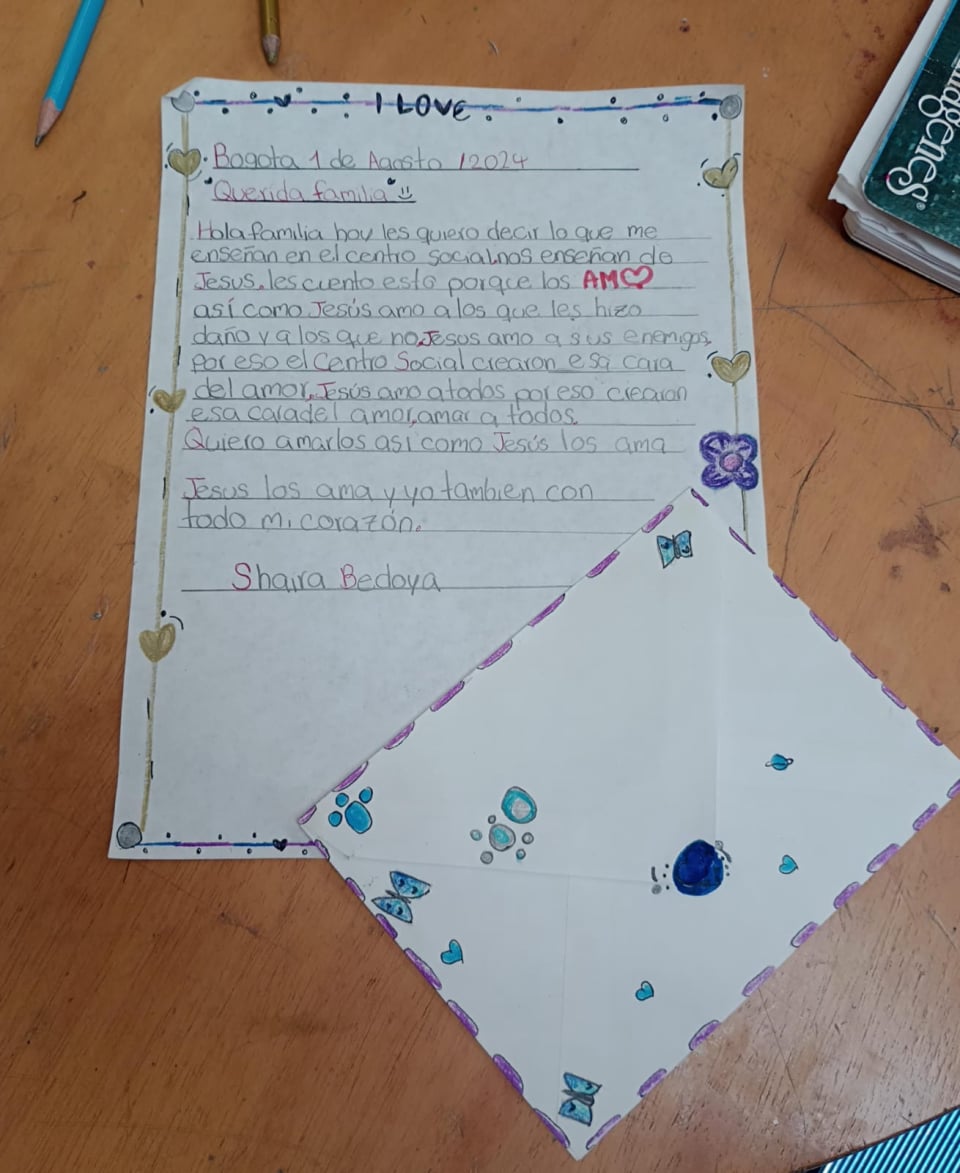 I LOVE
Bogota 1 de Agosto /2024
"Querida familia"
Hola familia hoy les quiero decir lo que me
enseñan en el centro social,nos enseñan de
Jesus, les cuento esto porque los AMO
así como Jesús amo a los que les hizo
daño y a los que no,Jesos amo a sus enemigos,
por eso el Centro Social crearon esa cara
del amor,Jesús amo a todos por eso crearon
esa cara del amor,amar a todos.
Quiero amarlos asi como Jesús los ama
Jesus los ama y yo tambien con
todo mi corazón.
Shaira Bedoya